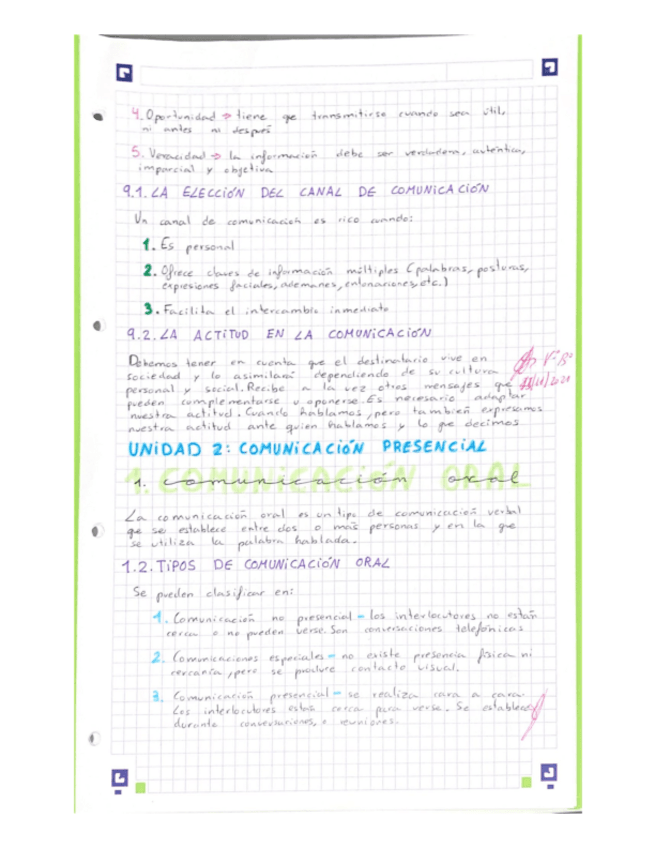 4. Oportunidad → tiene qe transmitirse cuando sea útil,
ni antes ni después
5. Veracidad → la información debe ser verdadera, auténtica,
imparcial y objetiva
9.1. LA ELECCIÓN DEL CANAL DE COMUNICACIÓN
Un canal de comunicación es rico cuando:
1. Es personal
2. Ofrece claves de información múltiples (palabras, posturas,
expresiones faciales, ademanes, entonaciones, etc.)
3. Facilita el intercambio inmediato
9.2. LA ACTITUD EN LA COMUNICACIÓN
Debemos tener en cuenta que el destinatario vive en
sociedad y lo asimilará dependiendo de su cultura
personal y social. Recibe a la vez otros mensajes que
pueden complementarse u oponerse. Es necesario adaptar
nuestra actitud. Cuando hablamos, pero también expresamos
nuestra actitud ante quien hablamos y lo que decimos
UNIDAD 2: COMUNICACIÓN PRESENCIAL
1. comunicación oral
La comunicación oral es un tipo de comunicación verbal
que se establece entre dos o más personas y en la que
se utiliza la palabra hablada.
1.2. TIPOS DE COMUNICACIÓN ORAL
Se pueden clasificar en:
1. Comunicación no presencial - los interlocutores no están
cerca o no pueden verse. Son conversaciones telefónicas
2. Comunicaciones especiales - no existe presencia física ni
cercanía, pero se produce contacto visual.
3. Comunicación presencial - se realiza cara a cara
Los interlocutores están cerca para verse. Se establece
durante conversaciones, o reuniones.